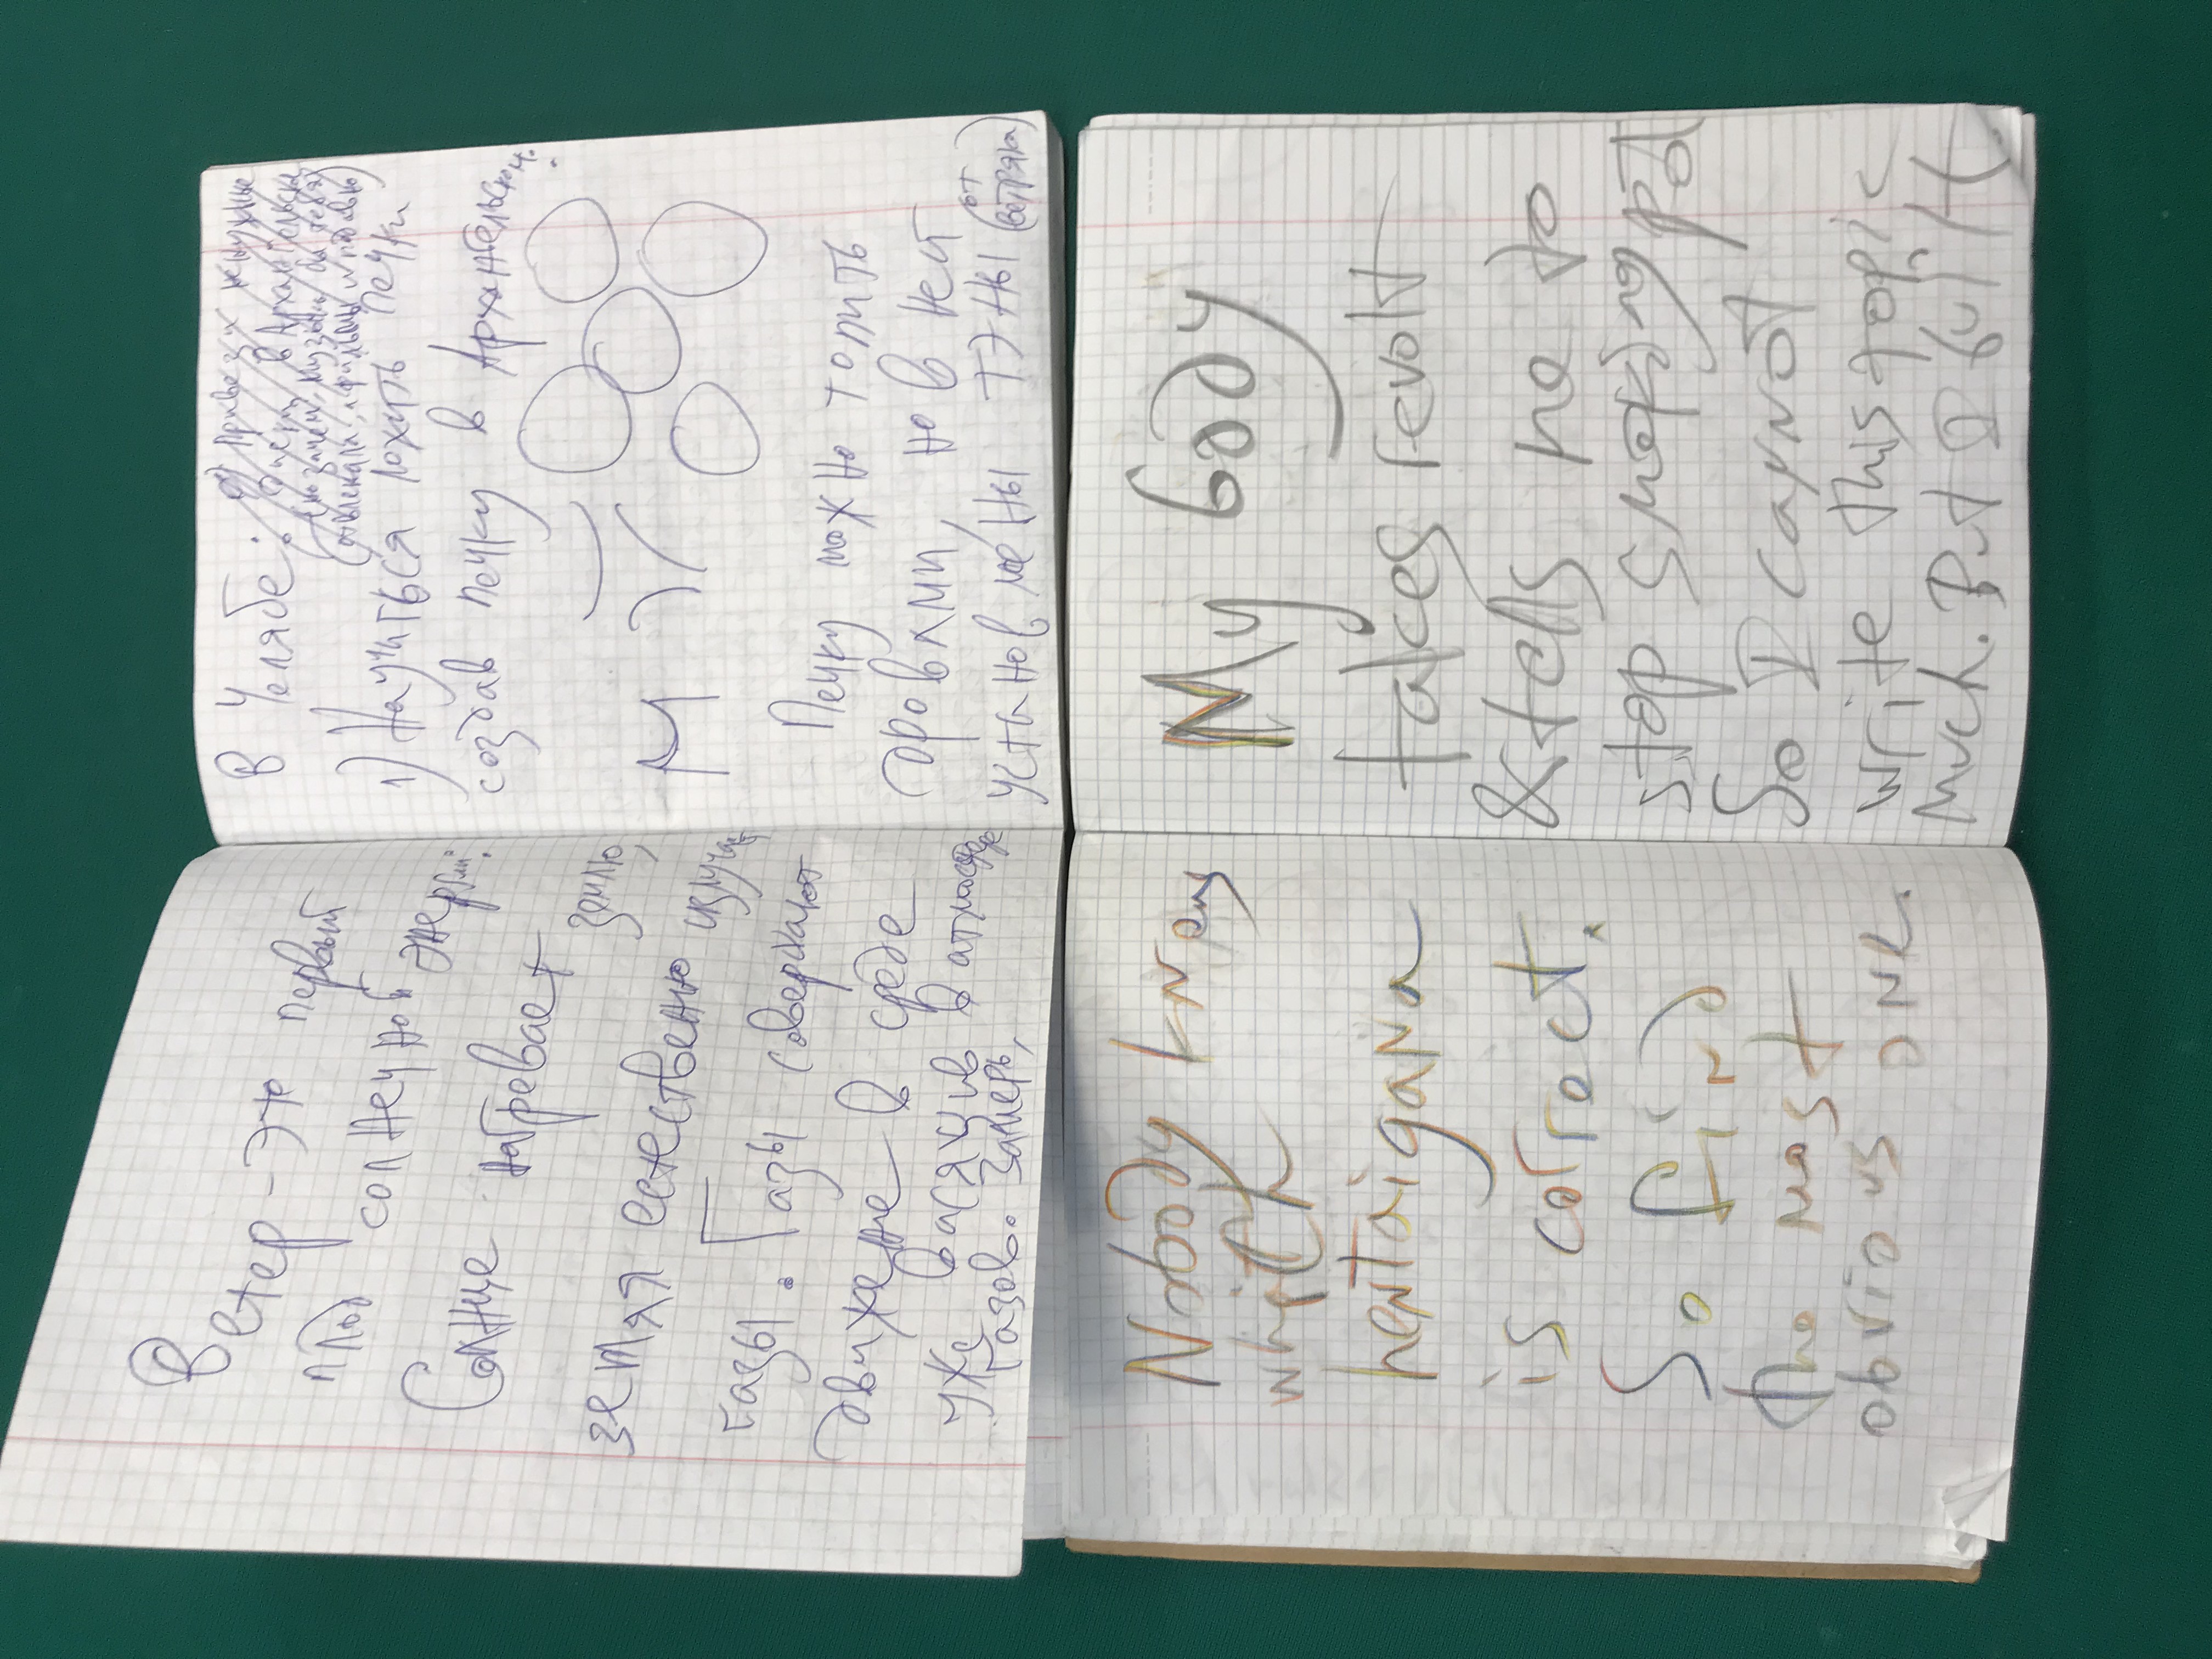 Ветер - это первый
плод солнечной энергии:
Солнце нагревает землю,
земля естественно излучает
газы. Газы совершают
движение в среде
уже в атмосфере
газов. Замерь,
В Челябе: 0) Привези ненужные
в Архангельск
музыка бы тебя
отвлекала, а фильмы и подавно)
1) Научиться ложить печки
создав печку в Архангельском:
М
Печку можно топить
дровами, но в ней
установлены ТЭНЫ (от
ветряка)
Nobody knows
which
hentaigana
is correct.
So find
the most
obvious one.
My body
takes revolt
& tells me to
stop smoking pot
So I cannot
write this topic
much. But I